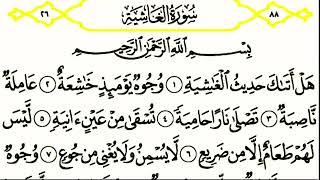 ٨٨ سُورَةُ الْغَاشِيَةِ ٢٦
بِسْمِ اللَّهِ الرَّحْمَٰنِ الرَّحِيمِ
هَلْ أَتَىٰكَ حَدِيثُ الْغَٰشِيَةِ ١ وُجُوهٌ يَوْمَئِذٍ خَٰشِعَةٌ ٢ عَامِلَةٌ
نَّاصِبَةٌ ٣ تَصْلَىٰ نَارًا حَامِيَةً ٤ تُسْقَىٰ مِنْ عَيْنٍ ءَانِيَةٍ ٥ لَّيْسَ
لَهُمْ طَعَامٌ إِلَّا مِن ضَرِيعٍ ٦ لَّا يُسْمِنُ وَلَا يُغْنِي مِن جُوعٍ ٧ وُجُوهٌ